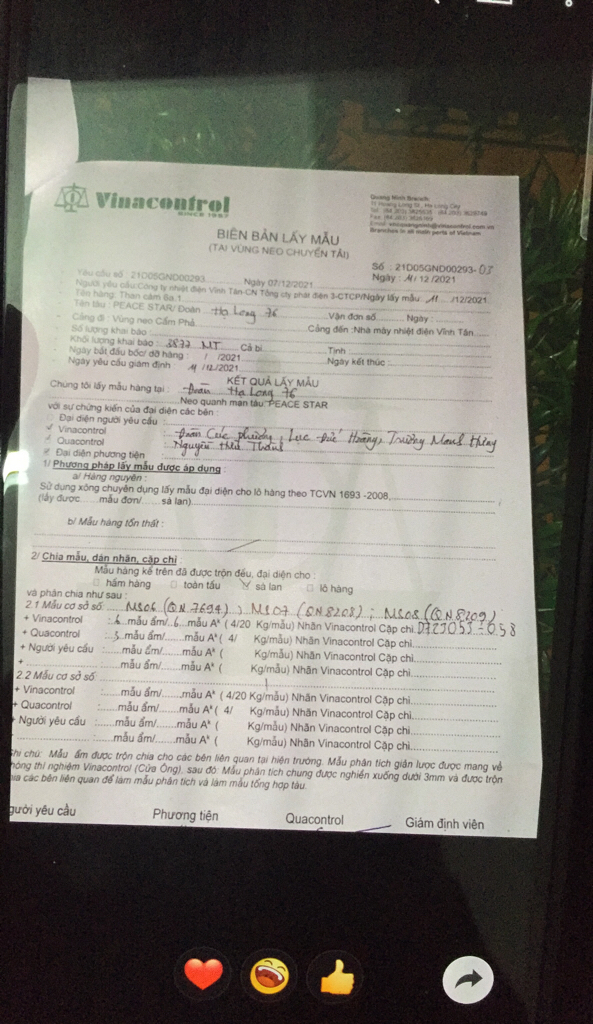 Vinacontrol
SINCE 1957
Quang Ninh Branch:
BIÊN BẢN LẤY MẪU
(TẠI VÙNG NEO CHUYỂN TẢI)
Số : 21D05GND00293-03
Yêu cầu số : 21D05GND00293 Ngày 07/12/2021 Ngày : 11/12/2021
Người yêu cầu:Công ty nhiệt điện Vĩnh Tân-CN Tổng cty phát điện 3-CTCP/Ngày lấy mẫu 11 /12/2021
Tên hàng: Than cám 6a.1
Tên tàu : PEACE STAR/ Đoàn Hạ Long 76 Vận đơn số Ngày :
Cảng đi : Vùng neo Cẩm Phả Cảng đến :Nhà máy nhiệt điện Vĩnh Tân
Số lượng khai báo :
Khối lượng khai báo : 3877 MT Cả bì Tịnh
Ngày bắt đầu bốc/ dỡ hàng : / /2021 Ngày kết thúc :
Ngày yêu cầu giám định 11/12/2021
KẾT QUẢ LẤY MẪU
Chúng tôi lấy mẫu hàng tại : Đoàn Hạ Long 76
Neo quanh mạn tàu PEACE STAR
với sự chứng kiến của đại diện các bên :
Đại diện người yêu cầu :
✓ Vinacontrol : Đoàn Cúc Phương, Lục Đức Hoàng, Trương Mạnh
✓ Quacontrol : Nguyễn
Đại diện phương tiện :
1/ Phương pháp lấy mẫu được áp dụng :
a/ Hàng nguyên :
Sử dụng xông chuyên dụng lấy mẫu đại diện cho lô hàng theo TCVN 1693 -2008,
(lấy được mẫu đơn/ sà lan)
b/ Mẫu hàng tổn thất :
2/ Chia mẫu, dán nhãn, cặp chì :
Mẫu hàng kể trên đã được trộn đều, đại diện cho :
□ hầm hàng □ toàn tàu ✓ sà lan □ lô hàng
và phân chia như sau :
2.1 Mẫu cơ sở số: MS06 (QN 7694) ; MS07 (QN8208) ; MS08 (QN8209)
+ Vinacontrol : 6 mẫu ẩm/ 6 mẫu A* ( 4/20 Kg/mẫu) Nhãn Vinacontrol Cặp chì
+ Quacontrol : 3 mẫu ẩm/ mẫu A* ( 4/ Kg/mẫu) Nhãn Vinacontrol Cặp chì
+ Người yêu cầu : mẫu ẩm/ mẫu A* ( Kg/mẫu) Nhãn Vinacontrol Cặp chì
+ mẫu ẩm/ mẫu A* ( Kg/mẫu) Nhãn Vinacontrol Cặp chì
2.2 Mẫu cơ sở số:
+ Vinacontrol : mẫu ẩm/ mẫu A* ( 4/20 Kg/mẫu) Nhãn Vinacontrol Cặp chì
+ Quacontrol : mẫu ẩm/ mẫu A* ( 4/ Kg/mẫu) Nhãn Vinacontrol Cặp chì
+ Người yêu cầu : mẫu ẩm/ mẫu A* ( Kg/mẫu) Nhãn Vinacontrol Cặp chì
mẫu ẩm/ mẫu A* ( Kg/mẫu) Nhãn Vinacontrol Cặp chì
hi chú: Mẫu ẩm được trộn chia cho các bên liên quan tại hiện trường. Mẫu phân tích giản lược được mang về
hòng thí nghiệm Vinacontrol (Cửa Ông), sau đó: Mẫu phân tích chung được nghiền xuống dưới 3mm và được trộn
ia các bên liên quan để làm mẫu phân tích và làm mẫu tổng hợp tàu.
gười yêu cầu Phương tiện Quacontrol Giám định viên